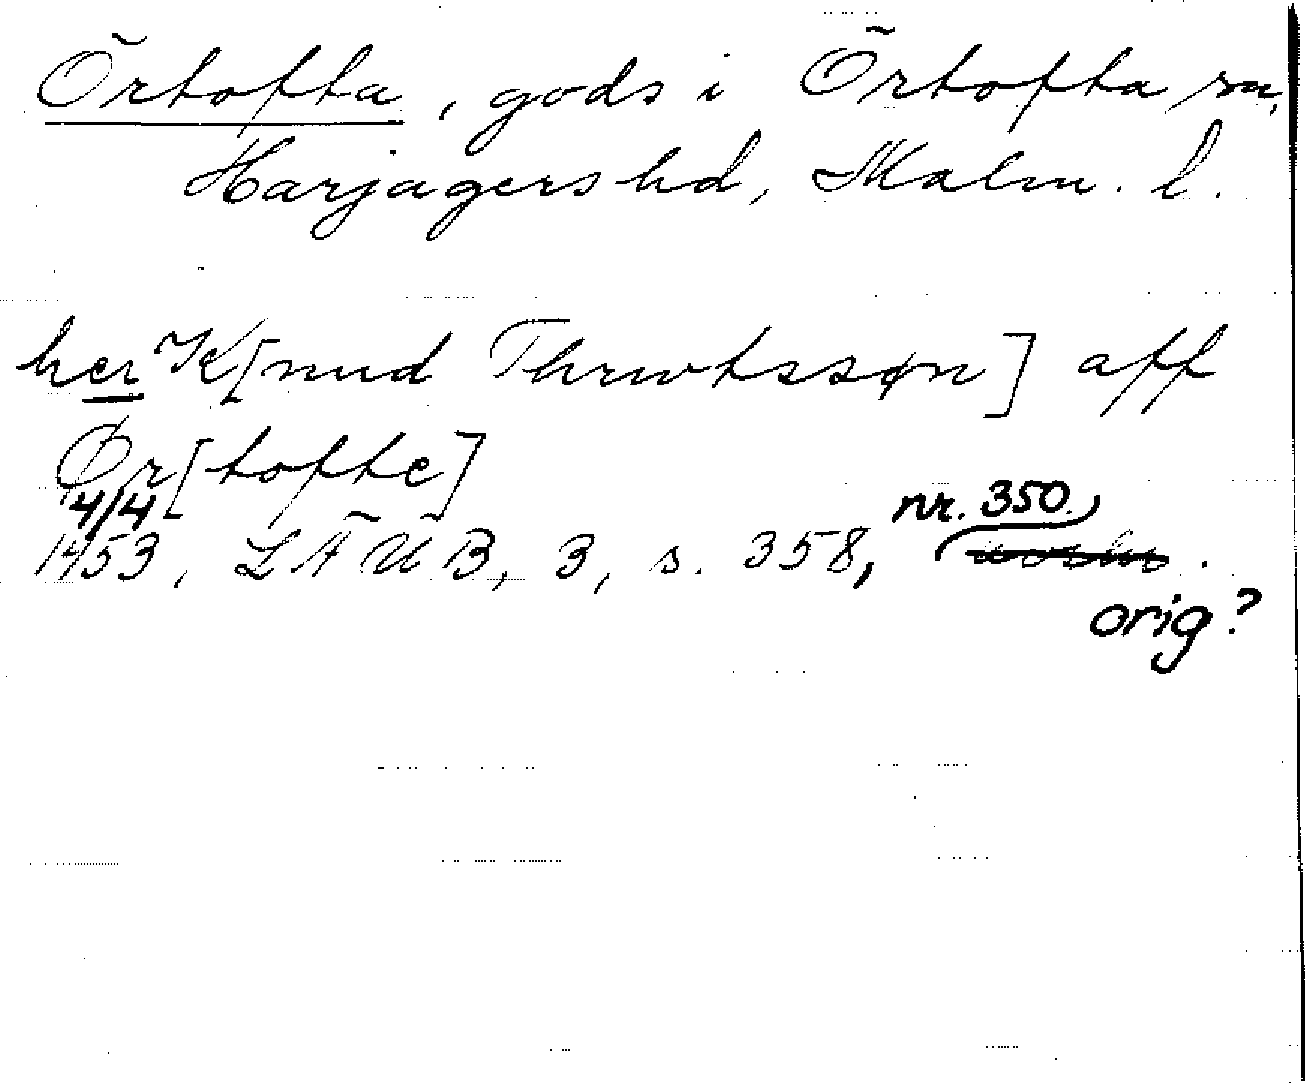 Örtofta, gods i Örtofta sn,
Harjagers hd, Malm. l.
her K[nud Thrwtssøn] aff
Ør[tofte]
4/4
1453, LÄUB, 3, s. 358, nr. 350.
orig?